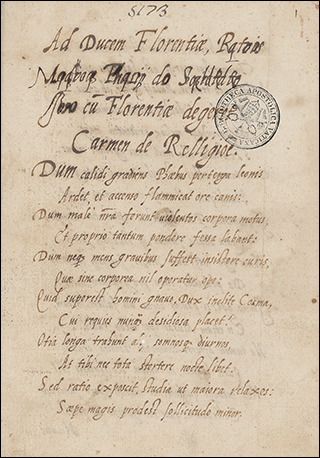 5173
1
Ad Ducem Florentiæ,
do
cū Florentiæ dege
Carmen de Religioe.
Dum calidi gradiens Phœbus per terga leonis
Ardet, et accenso flammicat ore canis:
Dum male nra ferunt violentos corpora motus,
Et proprio tantum pondere fessa labant:
Dum neq mens gravibus suffert insistere curis,
Quæ sine corporea nil operatur ope:
Quid superest homini gnavo, Dux inclite Cosma,
Cui requies nunq desidiosa placet?
Otia longa trahunt alij somnosq diurnos,
At tibi nec tota stertere nocte libet.
Sed ratio exposcit, studia ut maiora relaxes:
Sæpe magis prodest sollicitudo minor.
BIBLIOTHECA APOSTOLICA VATICANA